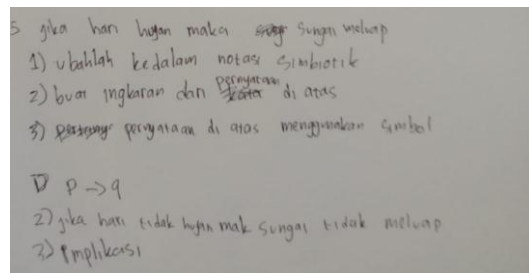 5 jika hari hujan maka sungai meluap
1) ubahlah kedalam notasi simbiotik
2) buat ingkaran dan pernyataan di atas
3) pernyataan di atas menggunakan simbol
1) P → q
2) jika hari tidak hujan mak sungai tidak meluap
3) implikasi